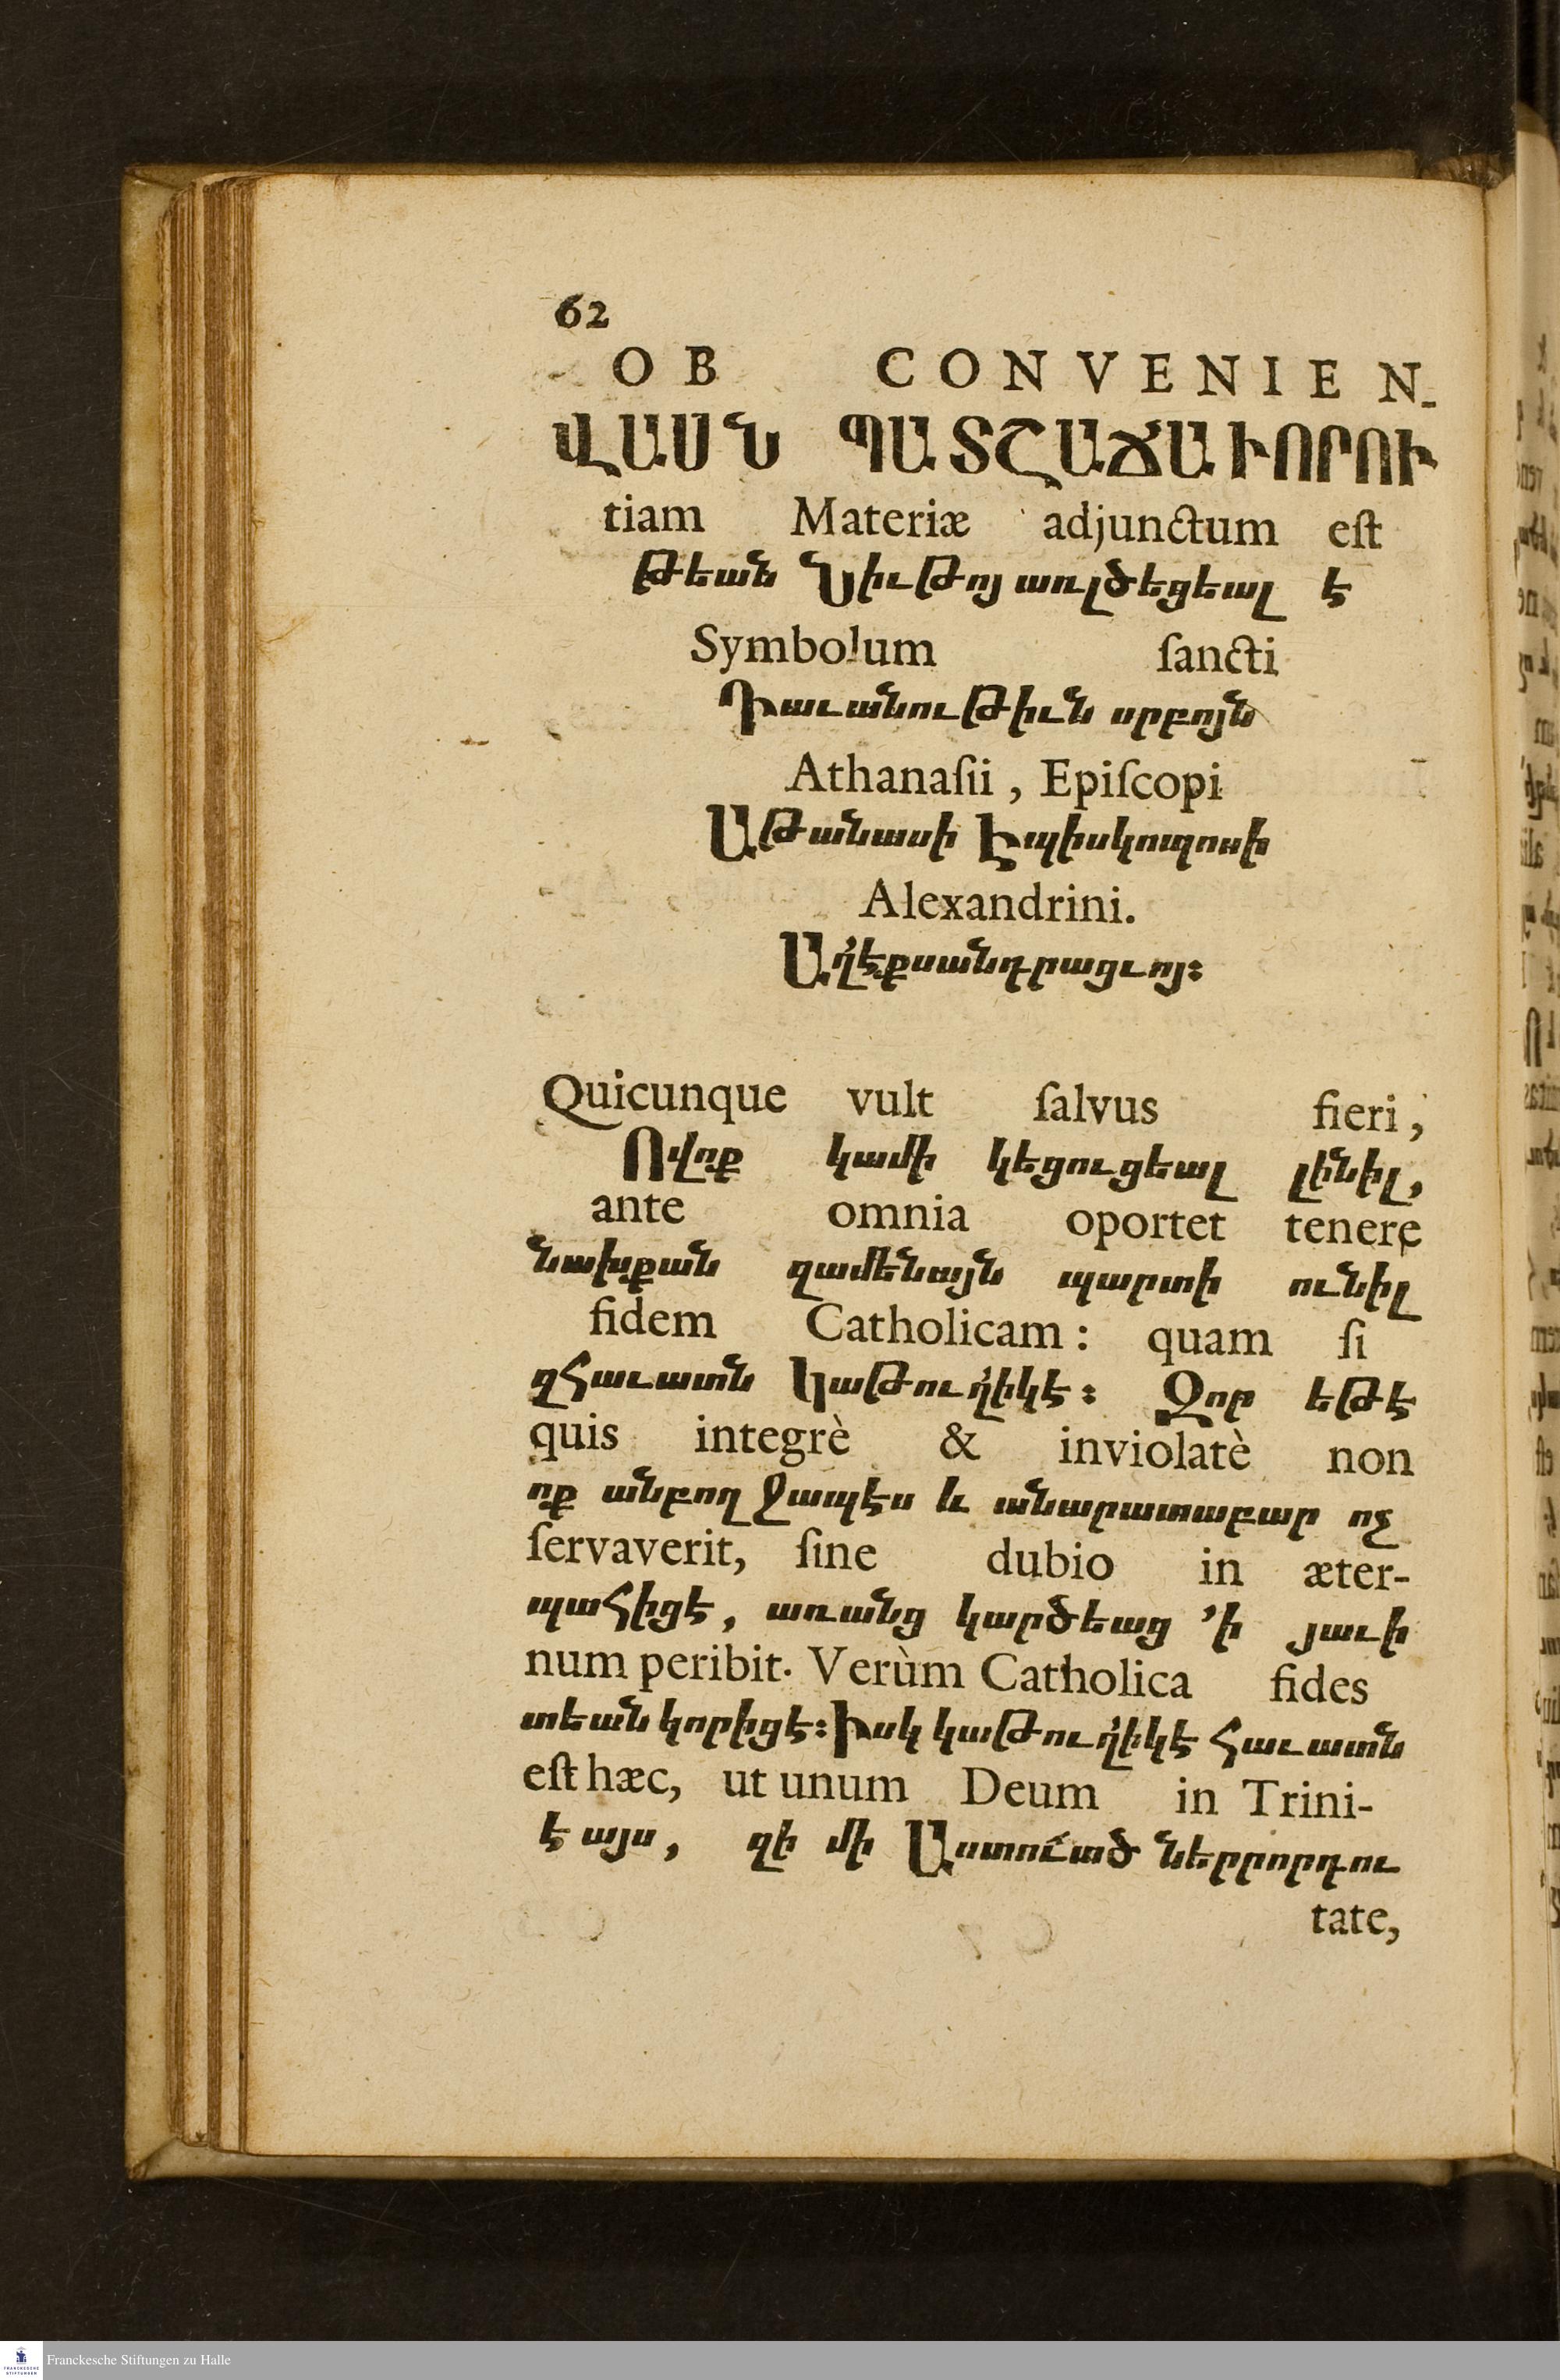 62
OB CONVENIEN-
ՎԱՍՆ ՊԱՏՇԱՃԱՒՈՐՈՒ
tiam Materiæ adjunctum eſt
թեան Նիւթոյ առլծեցեալ է
Symbolum ſancti
Դաւանութիւն սրբոյն
Athanaſii, Epiſcopi
Աթանասի Էպիսկոպոսի
Alexandrini.
Աղէքսանդրացւոյ։
Quicunque vult ſalvus fieri,
Ովոք կամի կեցուցեալ լինիլ,
ante omnia oportet tenere
նախքան զամենայն պարտի ունիլ
fidem Catholicam: quam ſi
զՀաւատն կաթուղիկէ։ Զոր եթէ
quis integrè & inviolatè non
ոք անբողջապէս և անարատաբար ոչ
ſervaverit, ſine dubio in æter-
պահիցէ, առանց կարծեաց ՚ի յաւի
num peribit. Verùm Catholica fides
տեան կորիցէ։ Իսկ կաթուղիկէ Հաւատն
eſt hæc, ut unum Deum in Trini-
է այս, զի մի Աստուած ներրորդու
tate,
Franckesche Stiftungen zu Halle
FRANCKESCHE
STIFTUNGEN